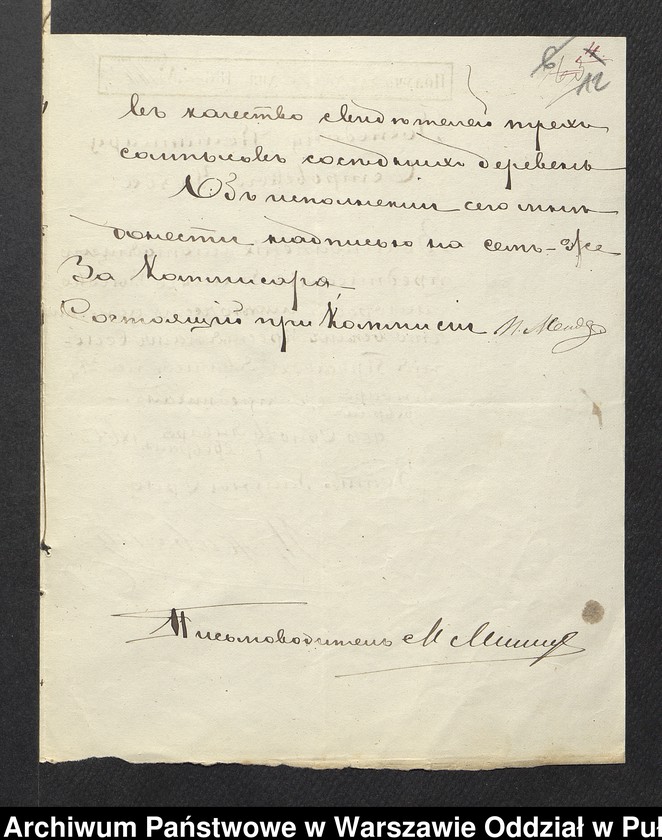 12
въ качество свидѣтелей трехъ
солтысовъ сосѣднихъ деревень
Объ исполненіи сего мнѣ
донести надписью на семъ-же
За Коммисара
Состоящій при Коммисіи
Письмоводитель
Archiwum Państwowe w Warszawie Oddział w Puł